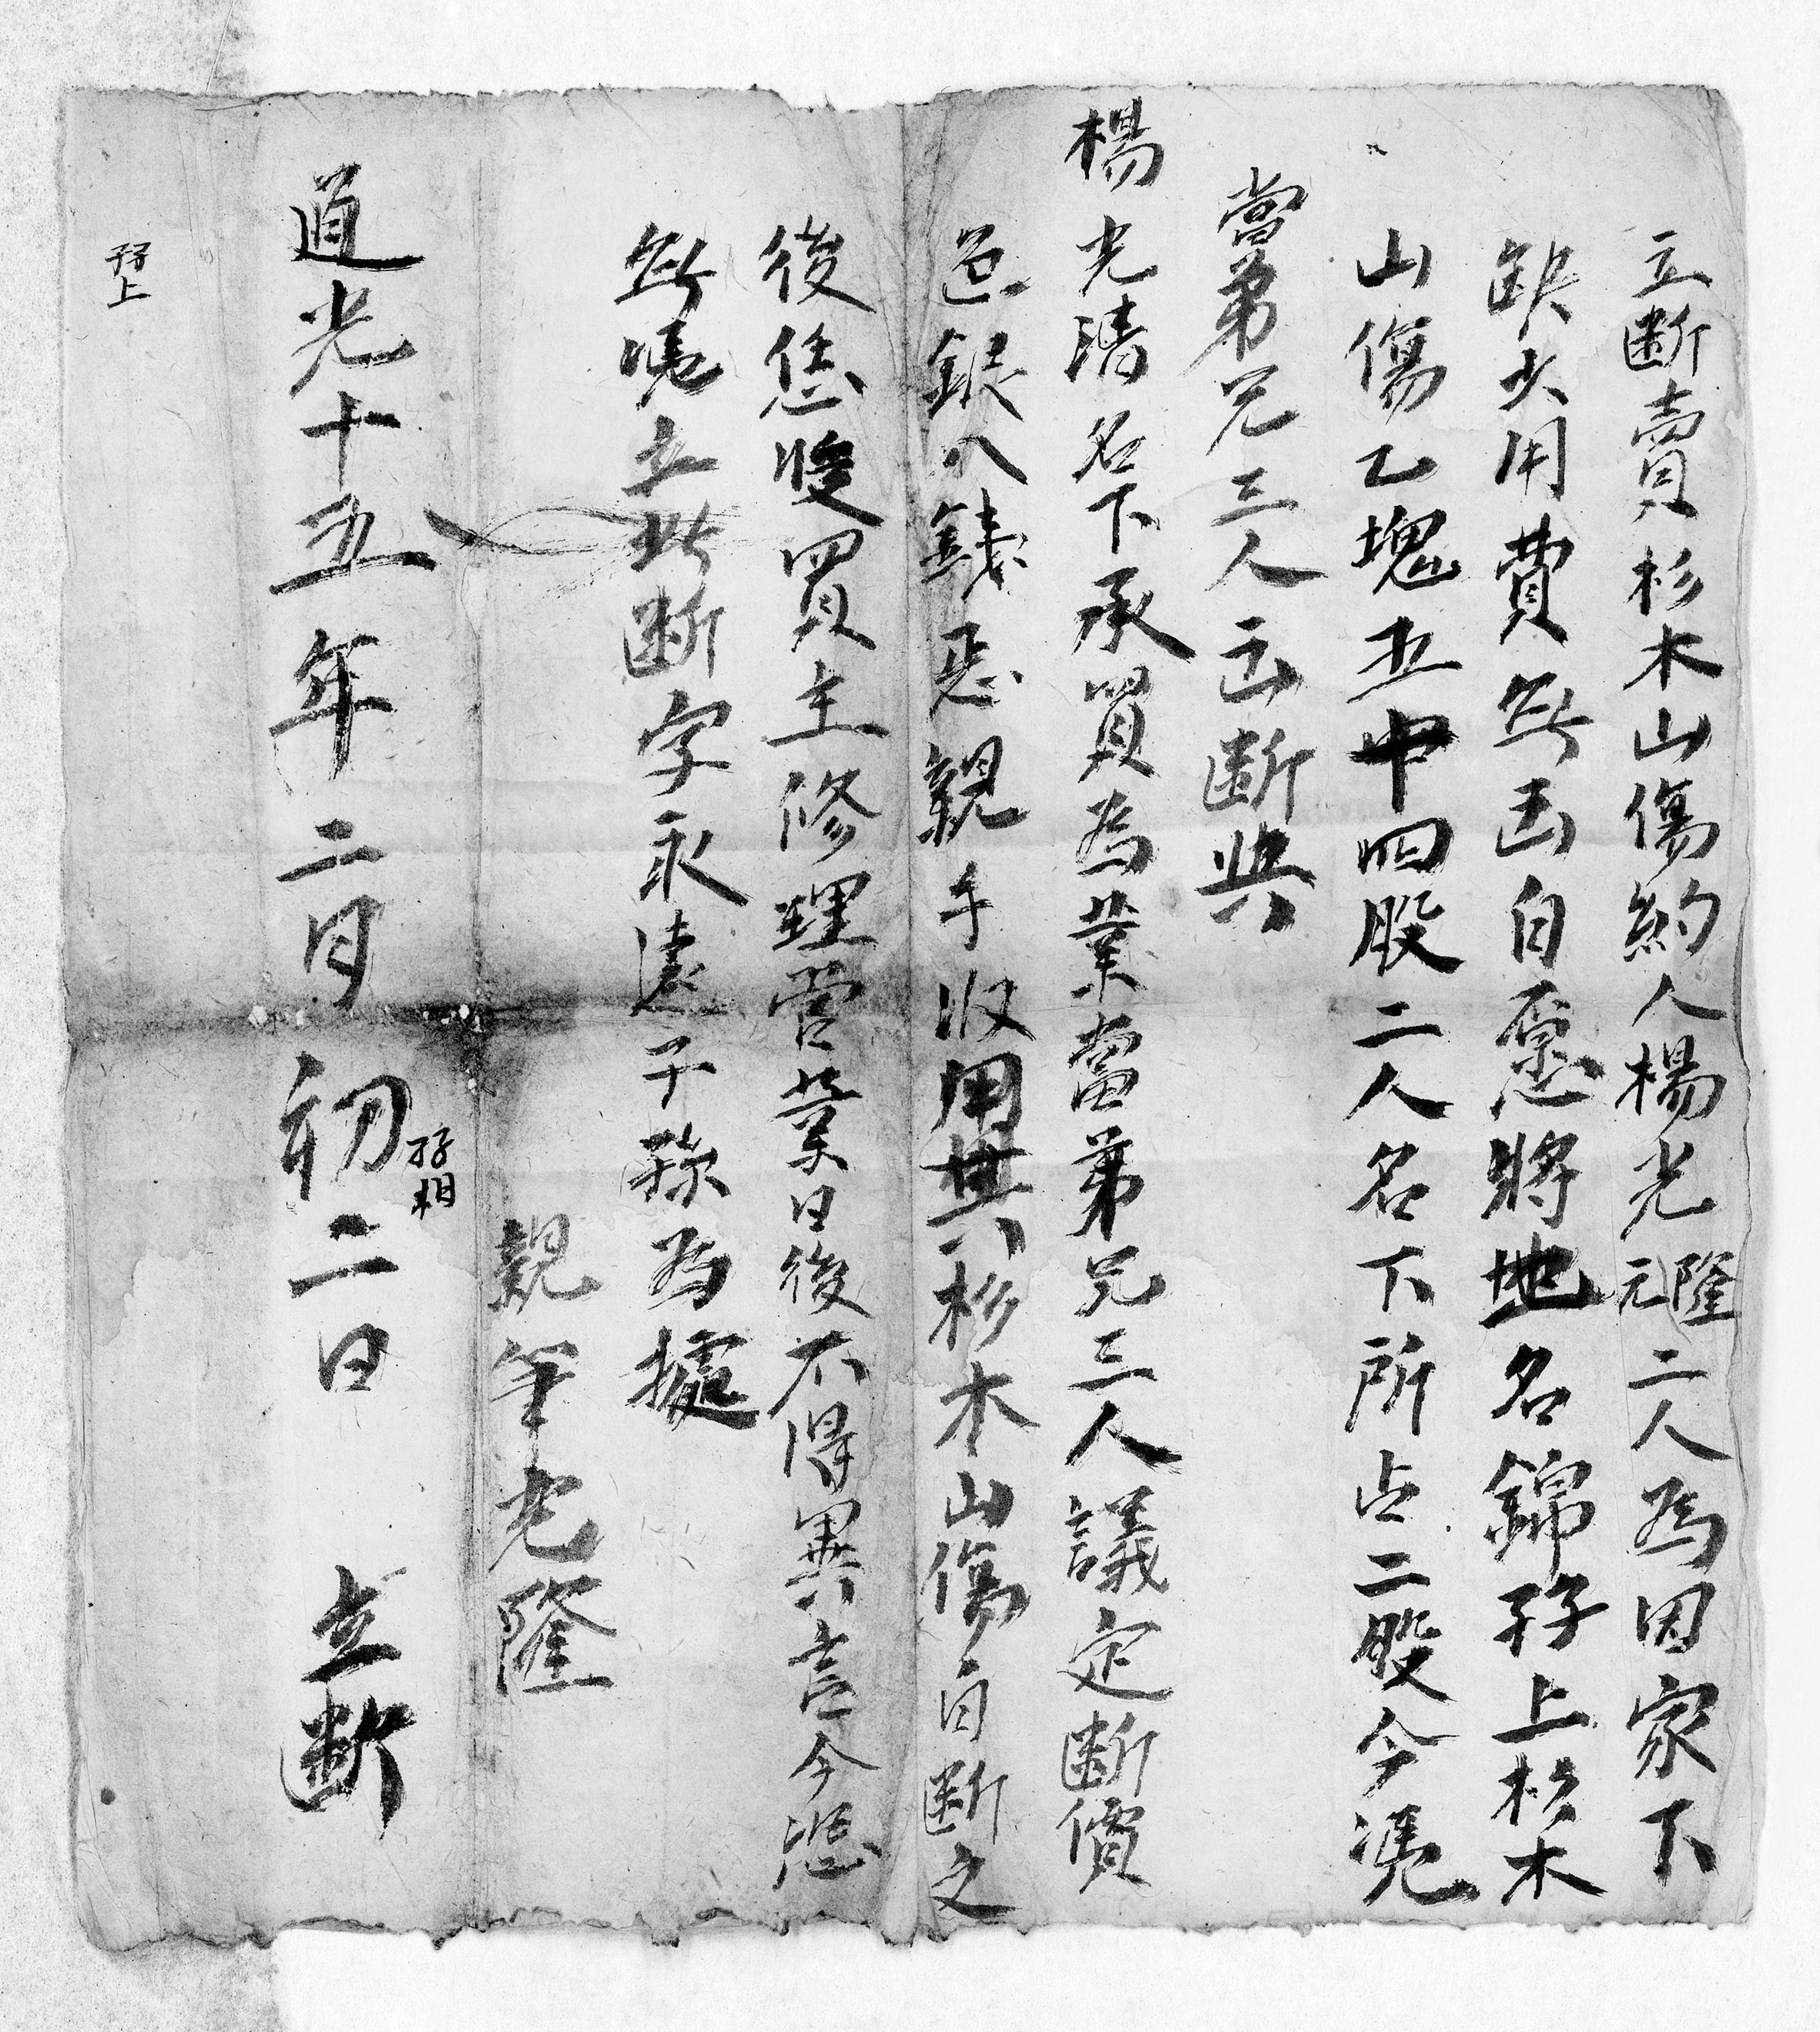 立断賣杉木山傷約人楊光隆元二人為因家下
缺少用費無出自愿將地名錦孖上杉木
山傷乙塊五中四股二人名下所占二股今凴
當弟兄三人出断與
楊光清名下承買為業當弟兄三人議定断價
色銀八錢親手收用其杉木山傷自断之
後恁買主修理营業日後不得異言今恐
無凴立此断字永遠子孫為據
親筆光隆
孖相
道光十五年二月初二日 立断
孖上